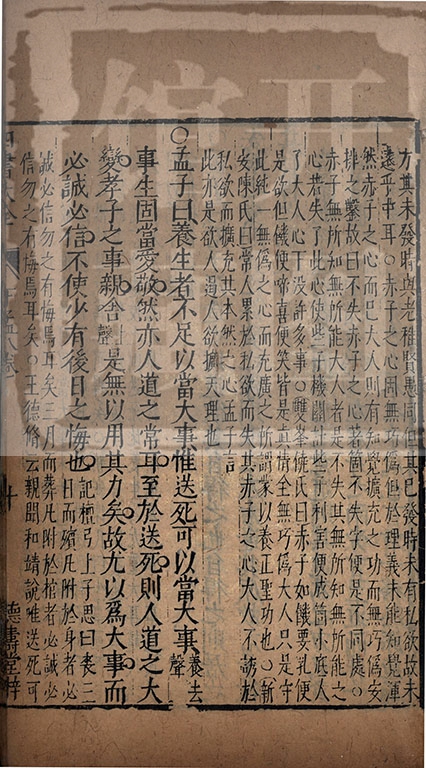 方其未發時與老稚賢愚同但其已發時未有私欲故未
遠乎中耳○赤子之心固無巧僞但於理義未能知覺渾
然赤子之心而已大人則有知覺擴充之功而無巧僞安
排之鑿故曰不失赤子之心著箇不失字便是不同處○
赤子無所知無所能大人者是不失其無所知無所能之
心若失了此心使些子機關計些子利害便成箇小底人
了大人心下没許多事○雙峯饒氏曰赤子如饑要乳便
是欲但饑便啼喜便笑皆是真情全無巧僞大人只是守
此純一無僞之心而充廣之所謂蒙以養正聖功也○新
安陳氏曰常人累於私欲而失其赤子之心大人不誘於
私欲而擴充其本然之心孟子言
此亦是欲人遏人欲擴天理也
○孟子曰養生者不足以當大事惟送死可以當大事養去聲
事生固當愛敬然亦人道之常耳至於送死則人道之大
變孝子之事親舍上聲是無以用其力矣故尤以爲大事而
必誠必信不使少有後日之悔也記檀弓上子思曰喪三
日而殯凡附於身者必
誠必信勿之有悔焉耳矣三月而葬凡附於棺者必誠必
信勿之有悔焉耳矣○王德脩云親聞和靖說唯送死可
十
德壽堂梓